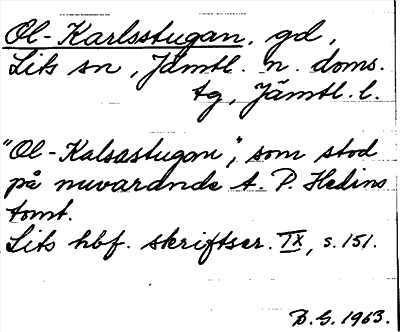 Ol-Karlsstugan, gd,
Lits sn, Jämtl. n. doms.
tg, Jämtl. l.
"Ol-Kalsastugan", som stod
på nuvarande A. P. Hedins
tomt.
Lits hbf. skriftser. IX, s. 151.
D.G. 1963.